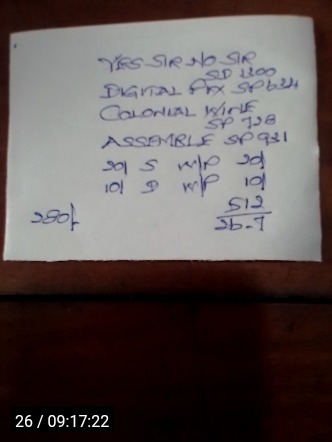 YES SIR NO SIR
SD 1200
DIGITAL PIX SP 624
COLONIAL WINE
SP 728
ASSEMBLE SP 931
20/ S W/P 20/
10/ D W/P 10/
280/- 512
26-7
26 / 09:17:22